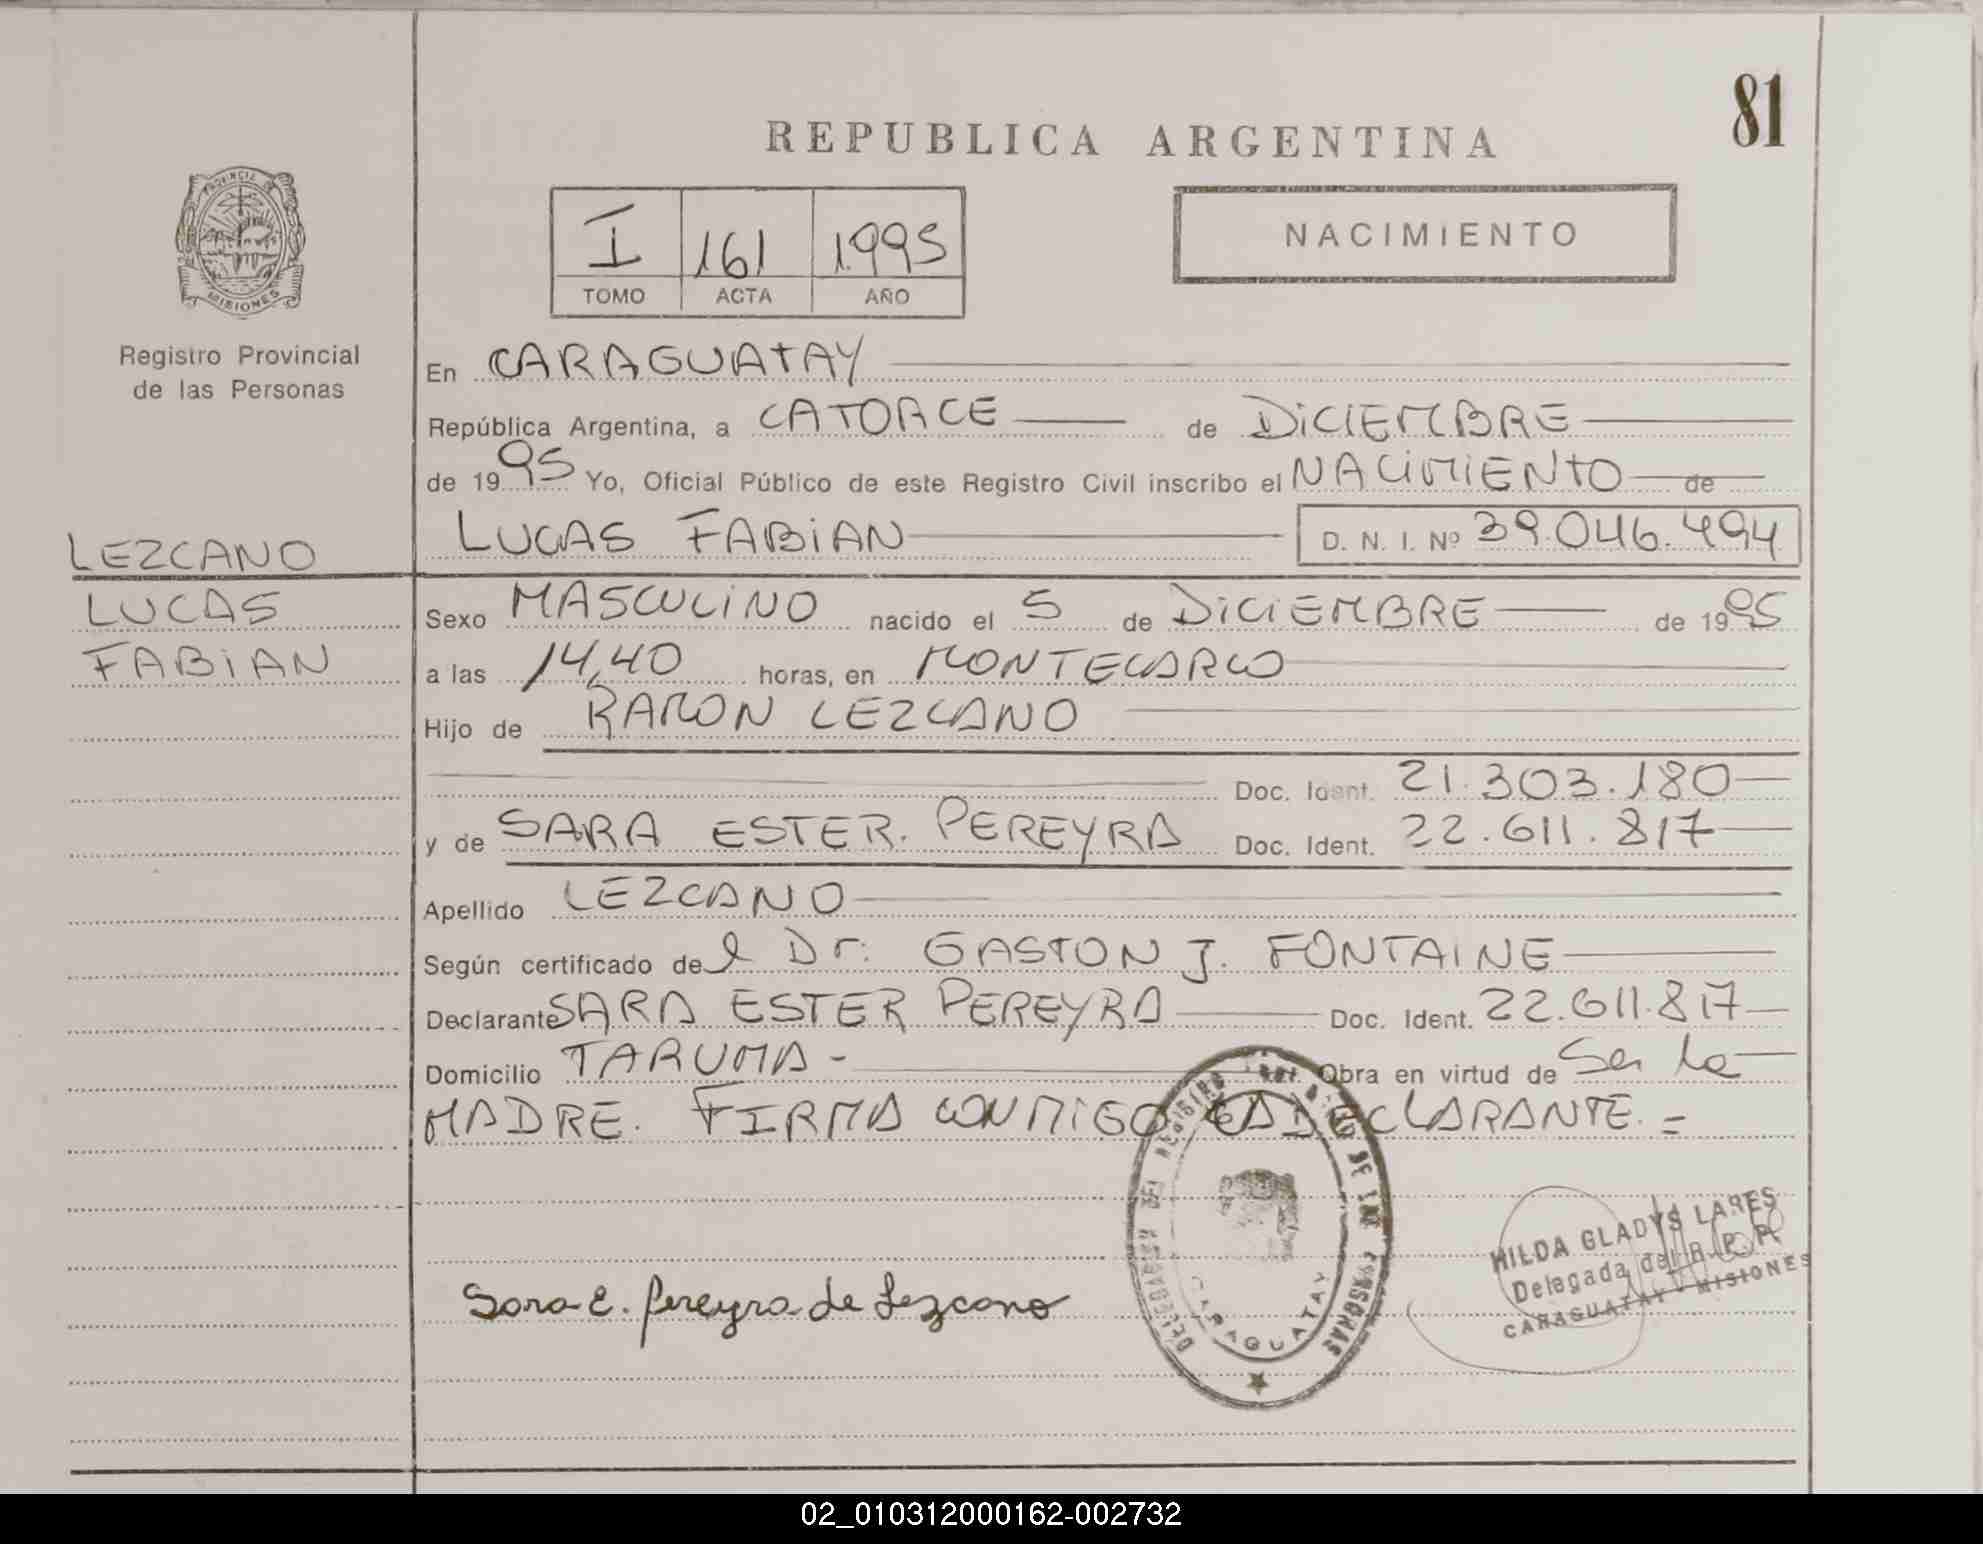 81
REPUBLICA ARGENTINA
PROVINCIA DE
MISIONES
Registro Provincial
de las Personas
I 161 1995
TOMO ACTA AÑO
NACIMIENTO
En CARAGUATAY
República Argentina, a CATORCE de DICIEMBRE
de 1995 Yo, Oficial Público de este Registro Civil inscribo el NACIMIENTO de
LUCAS FABIAN D. N. I. Nº 39.046.494
LEZCANO
LUCAS
FABIAN
Sexo MASCULINO nacido el 5 de DICIEMBRE de 1995
a las 14,40 horas, en MONTECARLO
Hijo de RAMON LEZCANO
Doc. Ident. 21.303.180
y de SARA ESTER. PEREYRA Doc. Ident. 22.611.817
Apellido LEZCANO
Según certificado del Dr: GASTON J. FONTAINE
Declarante SARA ESTER PEREYRA Doc. Ident. 22.611.817
Domicilio TARUMA - Obra en virtud de Ser la
MADRE. FIRMA CONMIGO LA DECLARANTE. =
Sara E. Pereyra de Lezcano
DELEGACION DEL REGISTRO PROVINCIAL DE LAS PERSONAS
CARAGUATAY
HILDA GLADYS LARES
Delegada del R. P. P.
CARAGUATAY - MISIONES
02_010312000162-002732